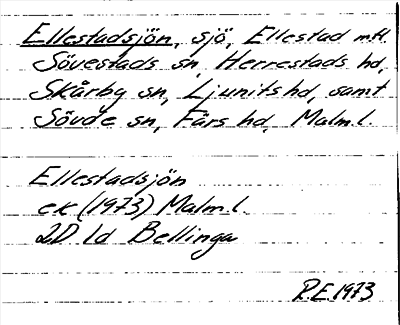 Ellestadsjön, sjö, Ellestad mtl.
Sövestads sn, Herrestads hd,
Skårby sn, Ljunits hd, samt
Sövde sn, Färs hd, Malm. l.
Ellestadsjön
ek (1973) Malm. l.
2D 1d Bellinga
R.E. 1973